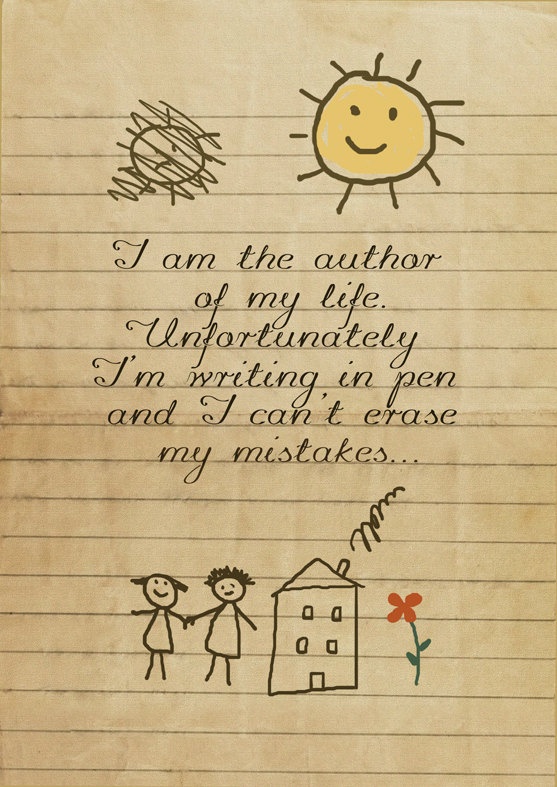 I am the author
of my life.
Unfortunately
I'm writing in pen
and I can't erase
my mistakes...